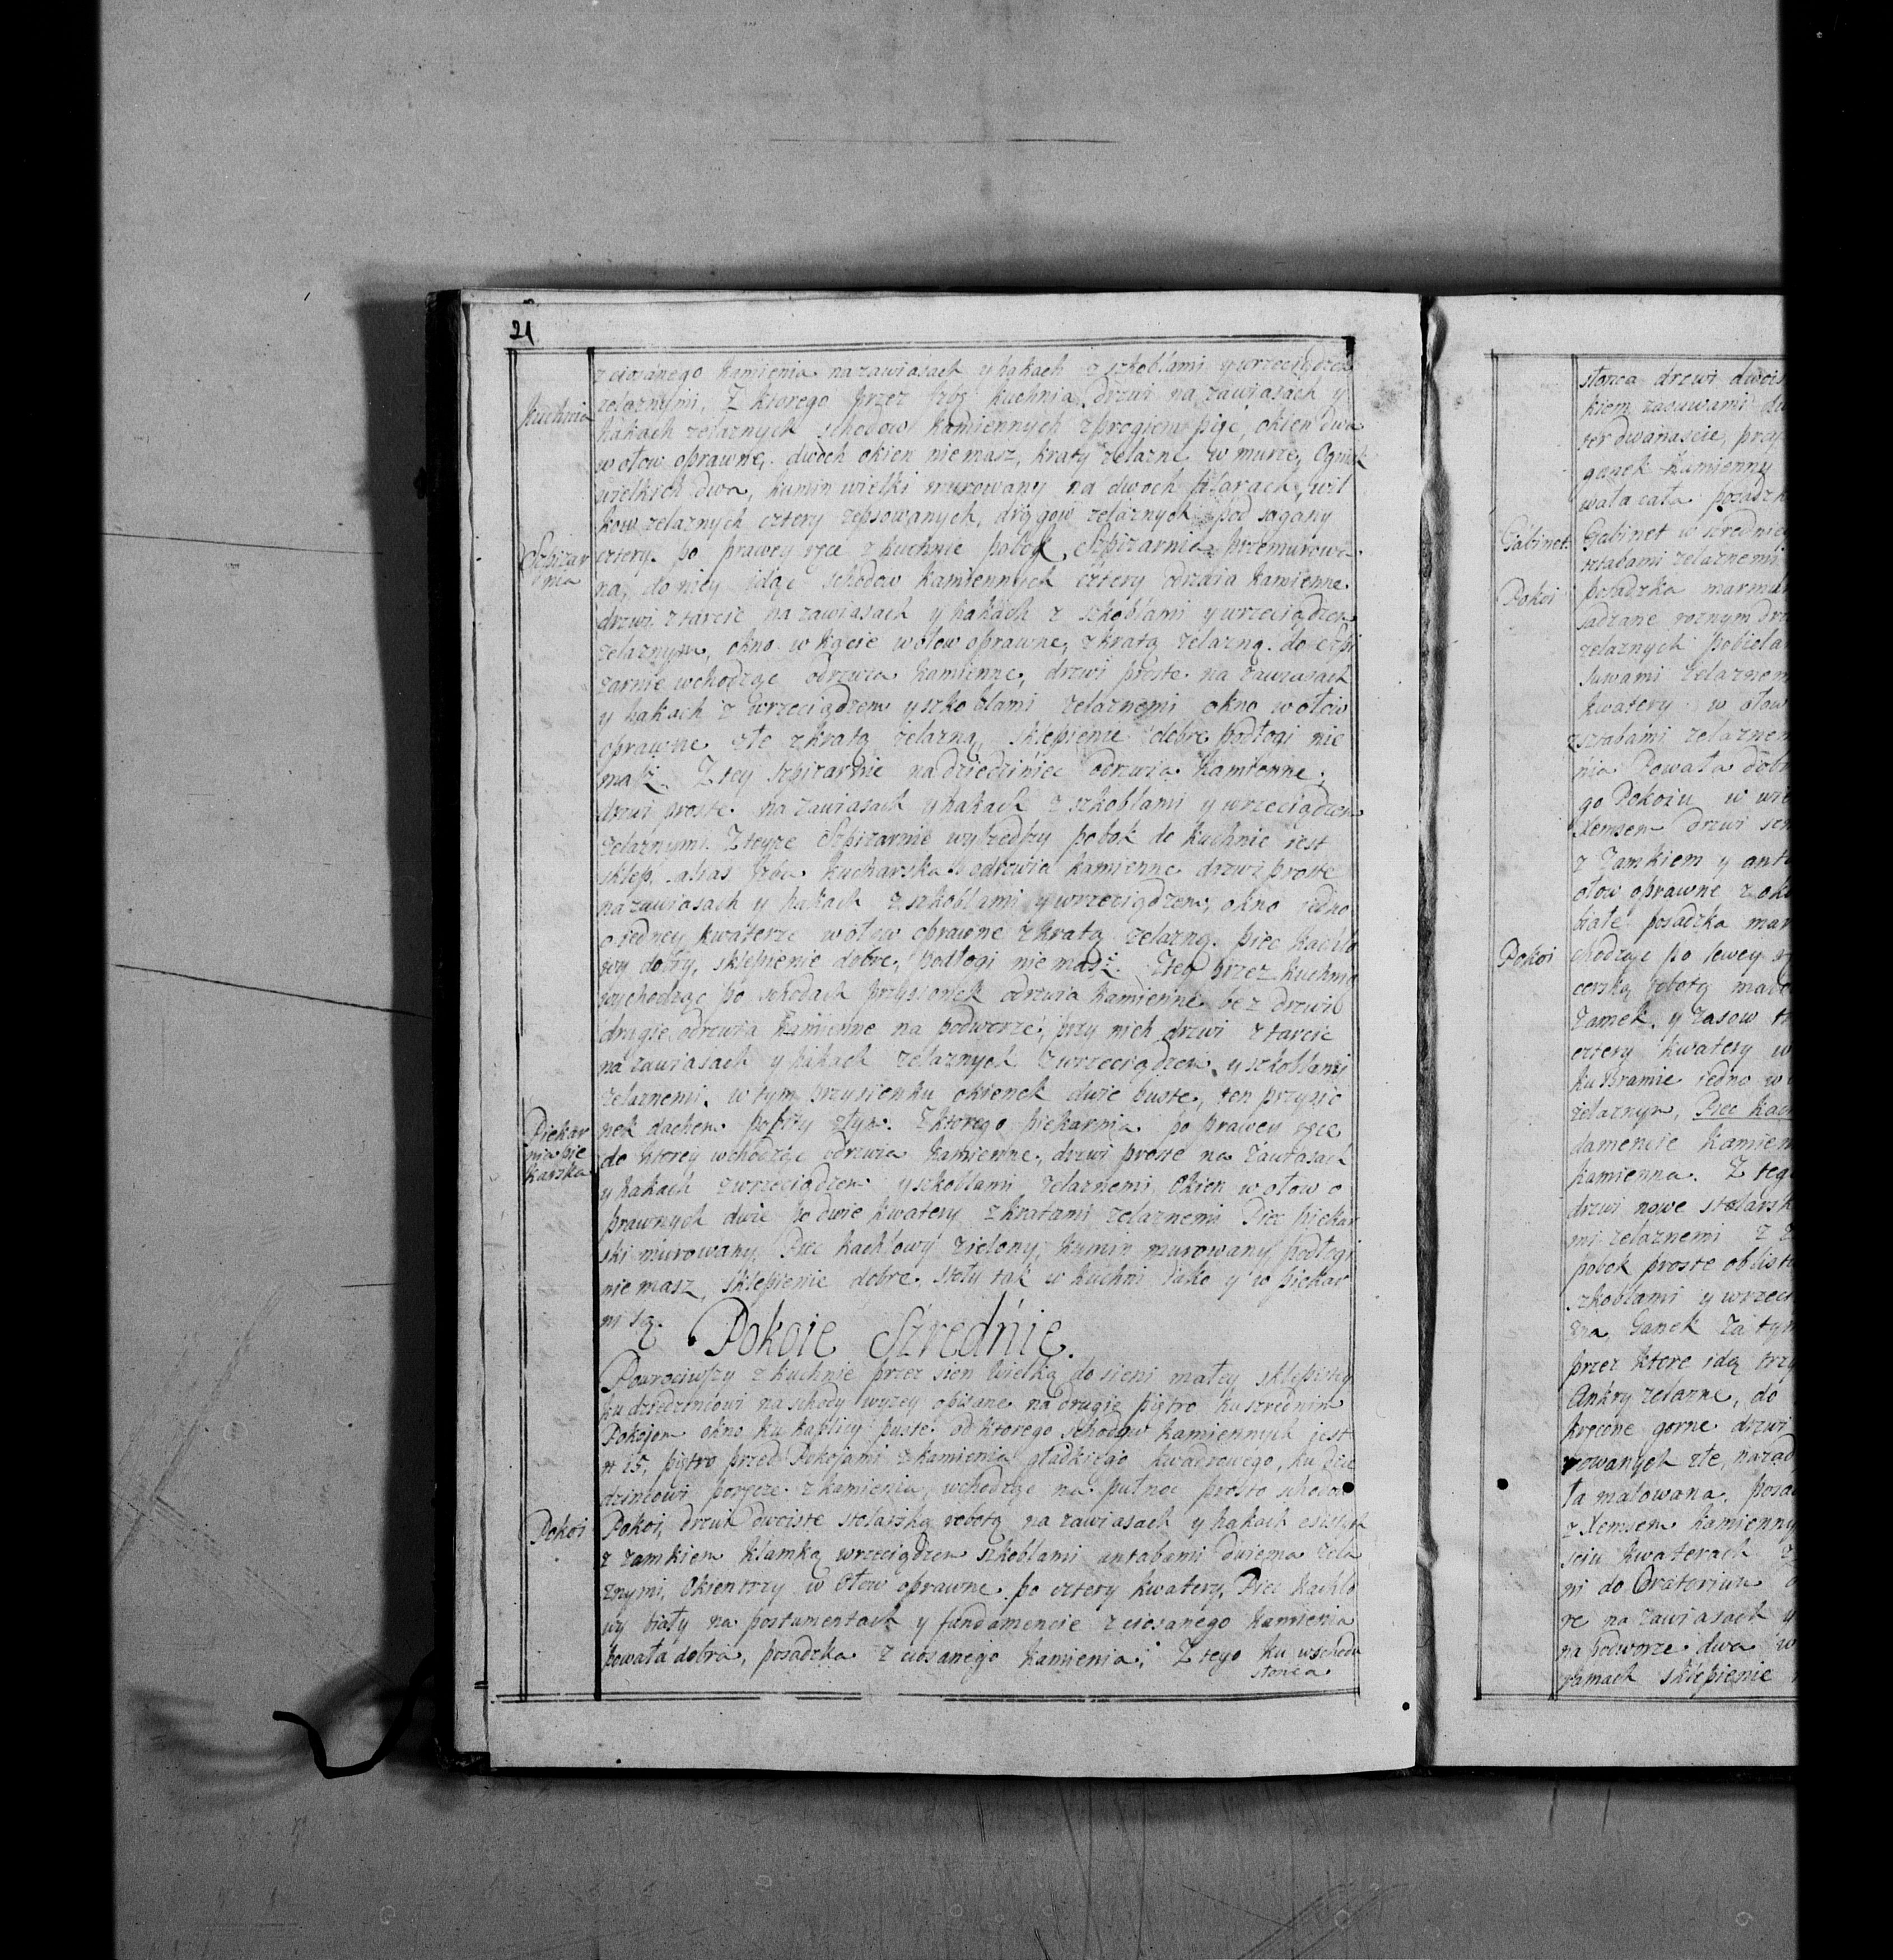 21
z ciosanego kamienia na zawiasach y hakach z szkoblami y wrzeciądzem
Kuchnia
zelaznymi, Z ktorego przez Izbę kuchnia drzwi na zawiasach y
hakach zelaznych schodow kamiennych z progiem pięć, okien dwa
w ołow oprawne, dwoch okien niemasz, kraty zelazne w murze, Ognisk
wielkich dwa, kumin wielki murowany na dwoch filarach, wil
kow zelaznych cztery zepsowanych, drągow zelaznych pod sagany
Szpizar
nia
cztery. po prawey ręce z kuchnie pobok Szpizarnia przemurowa
na, do niey idąc schodow kamiennych cztery odrzwia kamienne
drzwi z tarcic na zawiasach y hakach z szkoblami y wrzeciądzem
zelaznym, okno w kącie w ołow oprawne, z kratą zelazną. do szpi
zarnie wchodząc odrzwia kamienne, drzwi proste na zawiasach
y hakach z wrzeciądzem y szkoblami zelaznemi okno w ołow
oprawne złe z kratą zelazną, sklepienie dobre podłogi nie
masz. Z tey szpizarnie na dziedziniec odrzwia kamienne,
drzwi proste na zawiasach y hakach z szkoblami y wrzeciądzem
zelaznymi. Z teyze Szpizarnie wyszedszy pobok do kuchnie iest
sklep, alias Izba kucharska odrzwia kamienne drzwi proste
na zawiasach y hakach z szkoblami y wrzeciądzem, okno iedno
o iedney kwaterze w ołow oprawne z kratą zelazną. piec kachlo
wy dobry, sklepienie dobre, podłogi niemasz. Ztey przez kuchnie
wychodząc po schodach przysionek odrzwia kamienne bez drzwi
drugie odrzwia kamienne na podworze, przy nich drzwi z tarcic
na zawiasach y hakach zelaznych z wrzeciądzem y szkoblami
zelaznemi. w tym przysienku okienek dwie puste, ten przysio
Piekar
nia pie
karska
nek dachem pobity złym. Z ktorego piekarnia po prawey ręce
do ktorey wchodząc odrzwia kamienne, drzwi proste na zawiasach
y hakach z wrzeciądzem y szkoblami zelaznemi, Okien w ołow o
prawnych dwie po dwie kwatery z kratami zelaznemi Piec piekar
ski murowany, Piec kachlowy zielony, kumin murowany, podłogi
nie masz, sklepienie dobre, stoły tak w kuchni iako y w piekar
ni są.
Pokoie Szrednie.
Powrociwszy z kuchnie przez sien wielką do sieni małey sklepistey
ku dziedzincowi na schody wyzey opisane na drugie piątro ku szrednim
Pokojom okno ku kaplicy puste. od ktorego schodow kamiennych jest
n 15, piątro przed Pokojami z kamienia gładkiego kwadrowego, ku dzie
dzincowi poręcze z kamienia, wchodząc na pułnoc prosto schodow
Pokoi
Pokoi, drzwi dwoiste stolarską robotą na zawiasach y hakach
z zamkiem klamką wrzeciądzem szkoblami antabami dwiema zela
znymi, Okien trzy w Ołow oprawne po cztery kwatery, Piec kachlo
wy biały na postumentach y fundamencie z ciosanego kamienia
powała dobra, posadzka z ciosanego kamienia. Z tego ku wschodu
słonca
słonca drzwi dwois
kiem zasuwami
ter dwanascie, przy
ganek kamienny
wała cała posadzk
Gabinet
Gabinet w sredni
sztabami zelaznemi
Pokoi
posadzka marmur
sadzane roznym drz
zelaznych pobiela
suwami zelaznem
kwatery w ołow
sztabami zelaznem
nia Powała dobr
go Pokoiu w wie
Xemsem drzwi
z zamkiem y anta
ołow oprawne z ok
białe posadzka mar
Pokoi
chodząc po lewey
cerską robotą
Zamek, y zasow
cztery kwatery w
ku Bramie iedno w
zelaznym, Piec kach
damencie kamien
kamienna. Z teg
drzwi nowe stolarsk
mi zelaznemi z
pobok proste
szkoblami y wrzeci
zna, Ganek za tym
przez ktore idą trzy
Ankry zelazne, do
kręcone gorne drzwi
rowanych złe,
ta malowana, posa
z Xemsem kamienny
sciu kwaterach
ni do Oratorium
re na zawiasach y
na podworze dwa w
ramach sklepienie